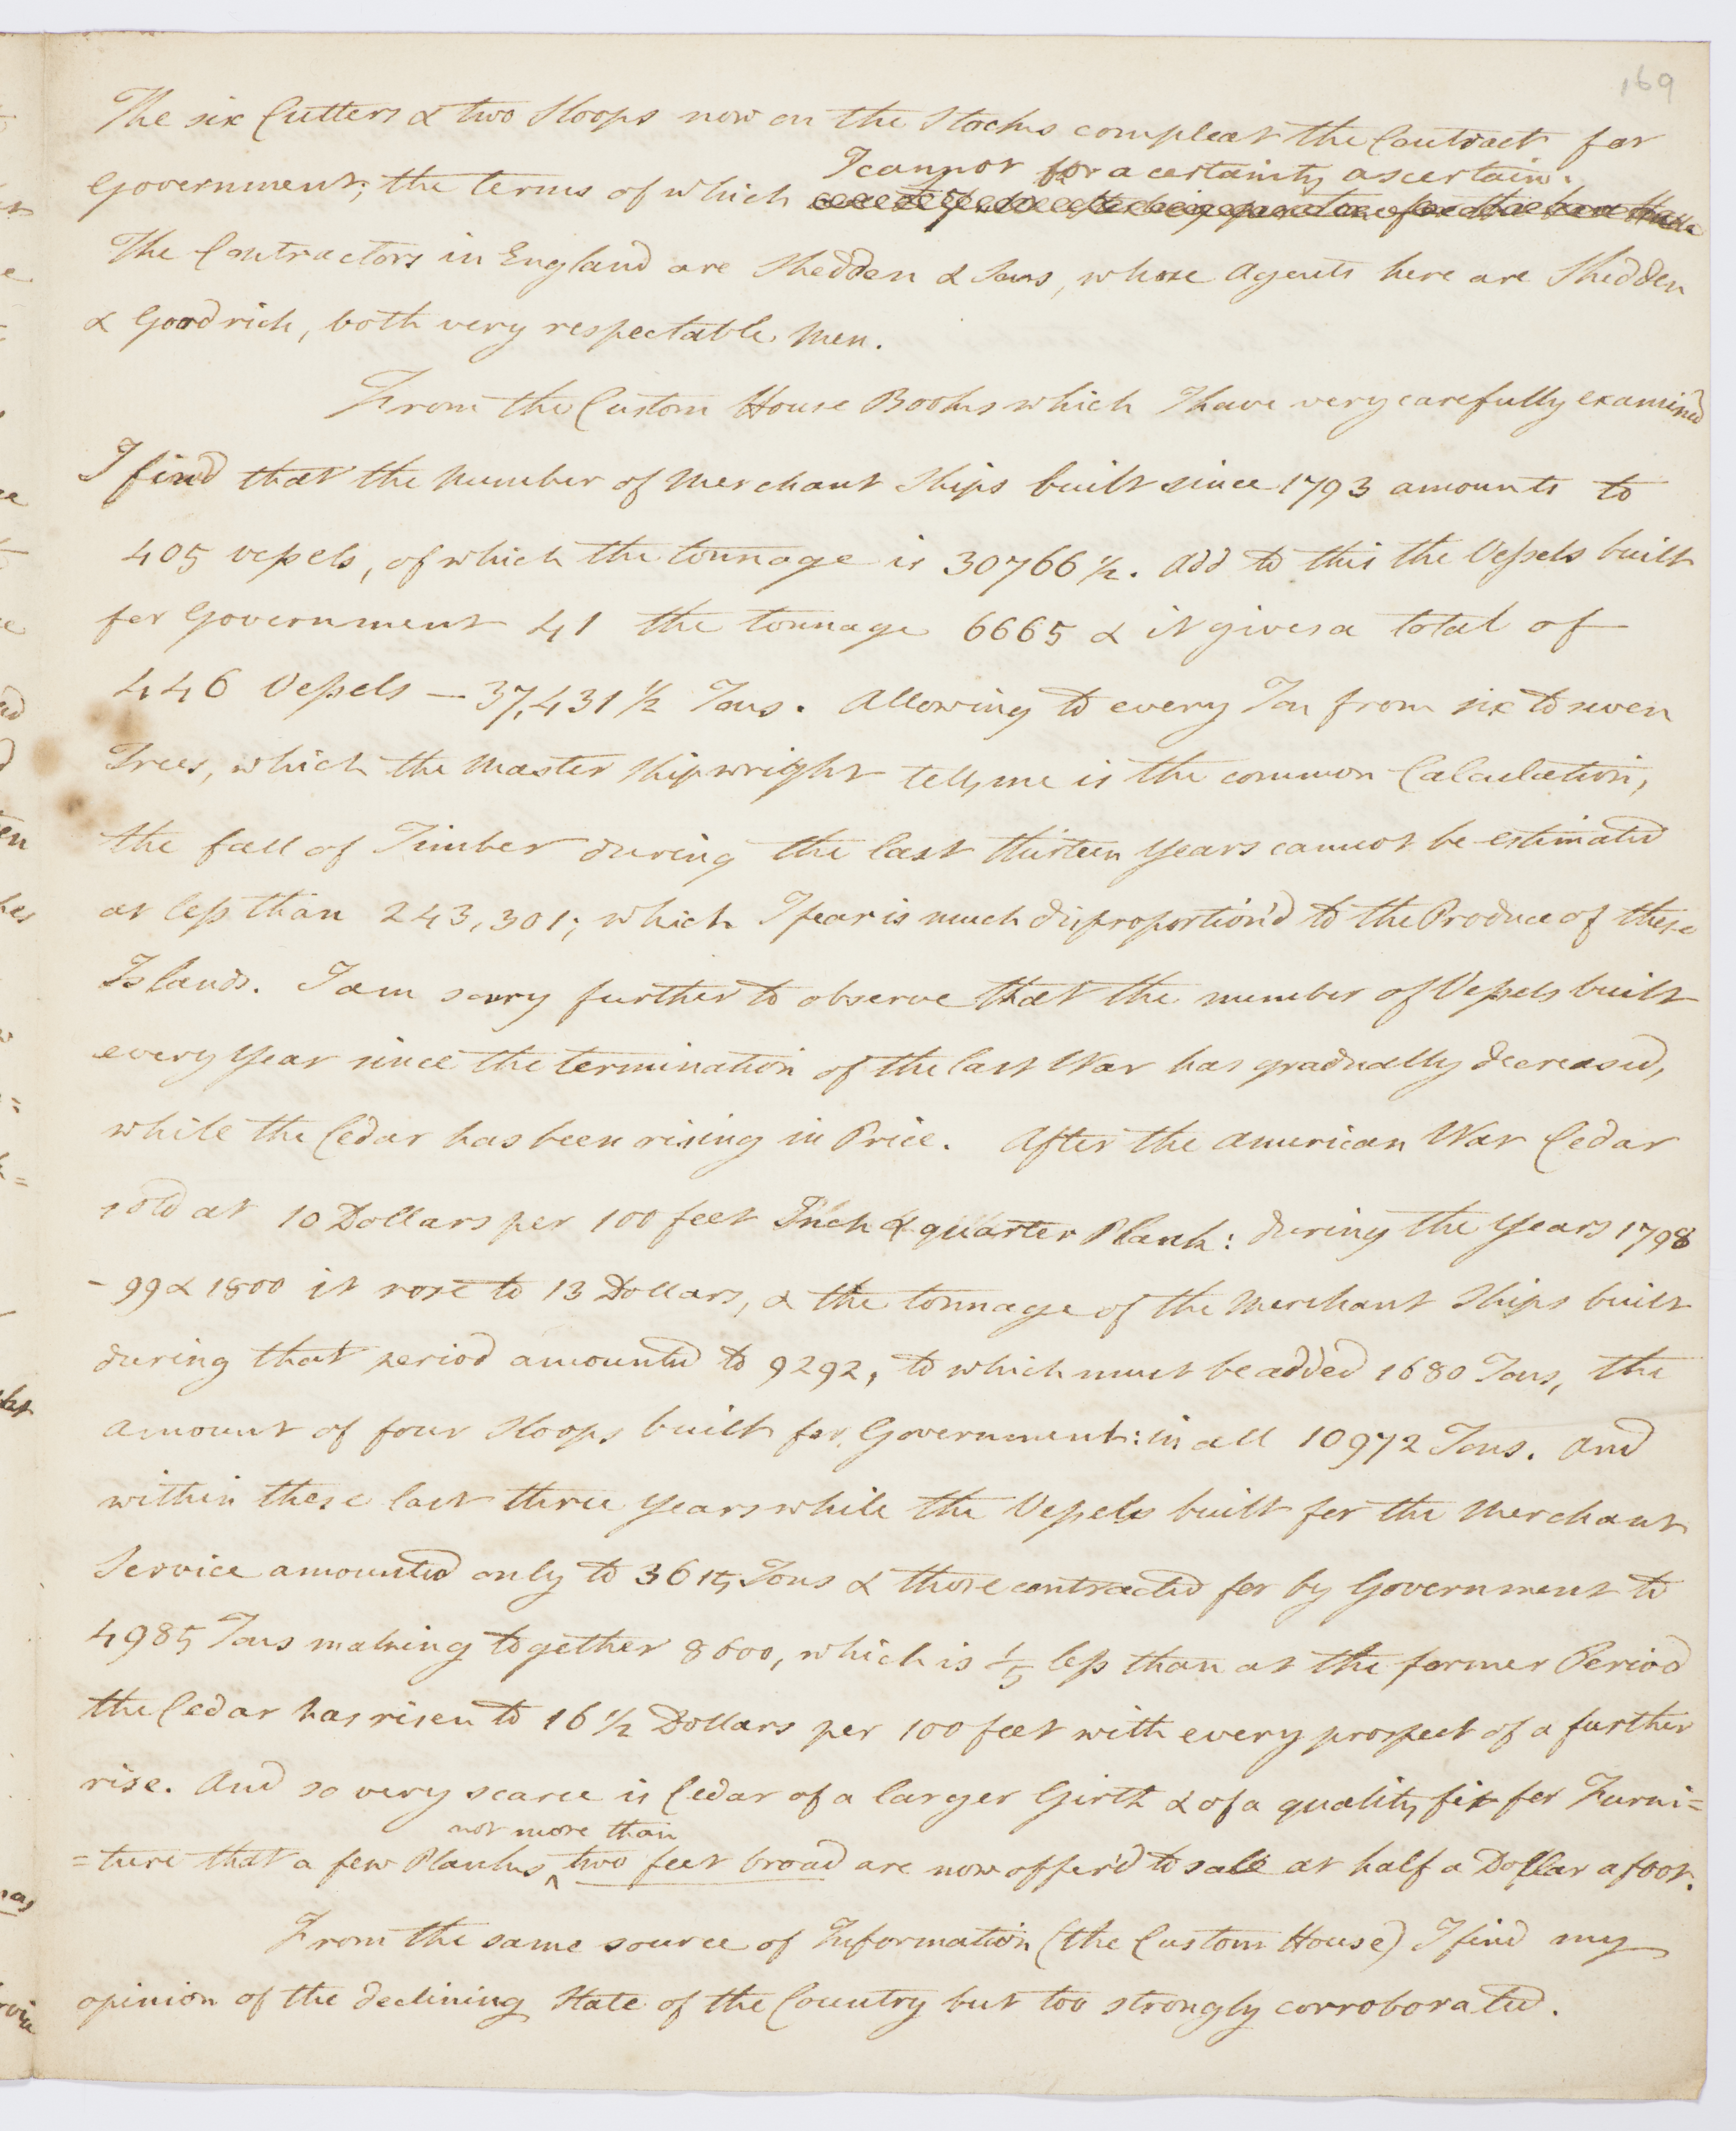 169
The six Cutters & two Sloops now on the Stocks compleat the Contract for
I cannot for a certainty ascertain.
Government; the terms of which
The Contractors in England are Shedden & Sons, whose Agents here are Shedden
& Goodrich, both very respectable Men.
From the Custom House Books which I have very carefully examined
I find that the Number of Merchant Ships built since 1793 amounts to
405 vessels, of which the tonnage is 30766 1/2. Add to this the Vessels built
for Government 41 the tonnage 6665 & it gives a total of
446 Vessels — 37,431 1/2 Tons. Allowing to every Ton from six to seven
Trees, which the Master Shipwright tells me is the common Calculation,
the fall of Timber during the last thirteen Years cannot be estimated
at less than 243,301; which I fear is much disproportion'd to the Produce of these
Islands. I am sorry further to observe that the number of Vessels built
every Year since the termination of the last War has gradually decreased,
while the Cedar has been rising in Price. After the American War Cedar
sold at 10 Dollars per 100 feet Inch & quarter Plank: during the Years 1798
- 99 & 1800 it rose to 13 Dollars, & the tonnage of the Merchant Ships built
during that period amounted to 9292, to which must be added 1680 Tons, the
amount of four Sloops built for Government: in all 10972 Tons. And
within these last three Years while the Vessels built for the Merchant
Service amounted only to 3615 Tons & those contracted for by Government to
4985 Tons making together 8600, which is 1/5 less than at the former Period
the Cedar has risen to 16 1/2 Dollars per 100 feet with every prospect of a further
rise. And so very scarce is Cedar of a larger Girth & of a quality fit for Furni=
not more than
=ture that a few Planks ^ two feet broad are now offer'd to sale at half a Dollar a foot.
From the same source of Information (the Custom House) I find my
opinion of the declining State of the Country but too strongly corroborated.